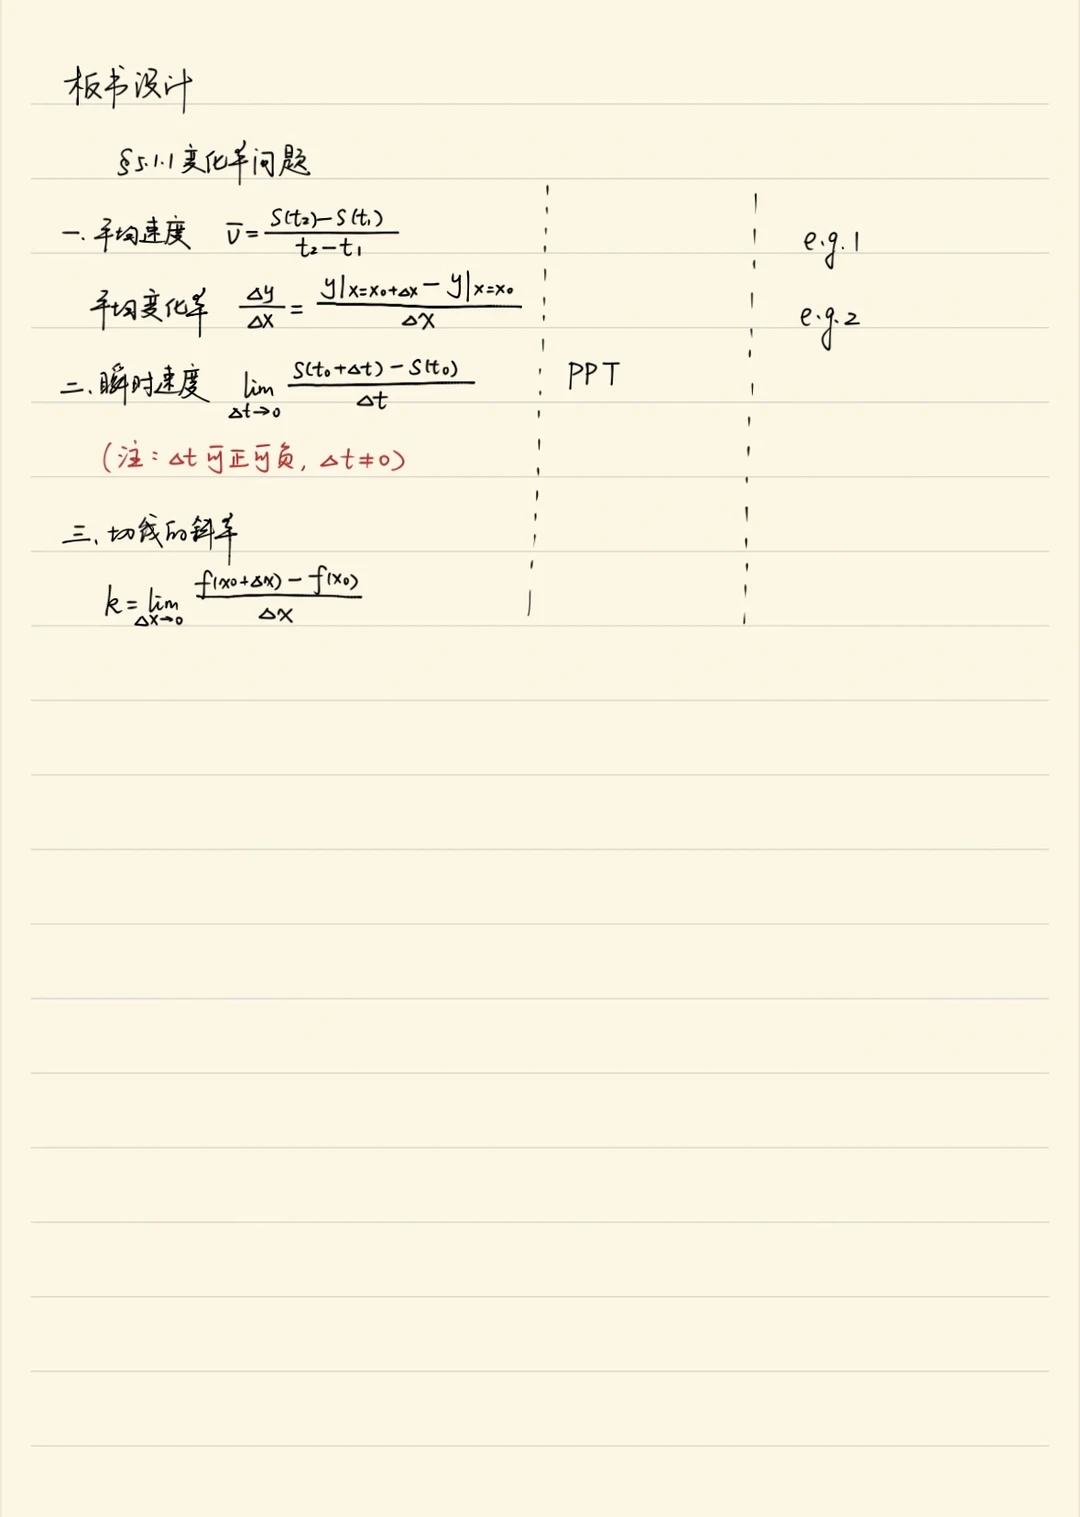 板书设计
§5.1.1 变化率问题
一. 平均速度 v̄ = (S(t₂)-S(t₁))/(t₂-t₁)
平均变化率 Δy/Δx = (y|x=x₀+Δx - y|x=x₀)/Δx
二. 瞬时速度 lim Δt→0 (S(t₀+Δt)-S(t₀))/Δt
(注：Δt可正可负, Δt≠0)
三、切线的斜率
k = lim Δx→0 (f(x₀+Δx)-f(x₀))/Δx
PPT
e.g.1
e.g.2